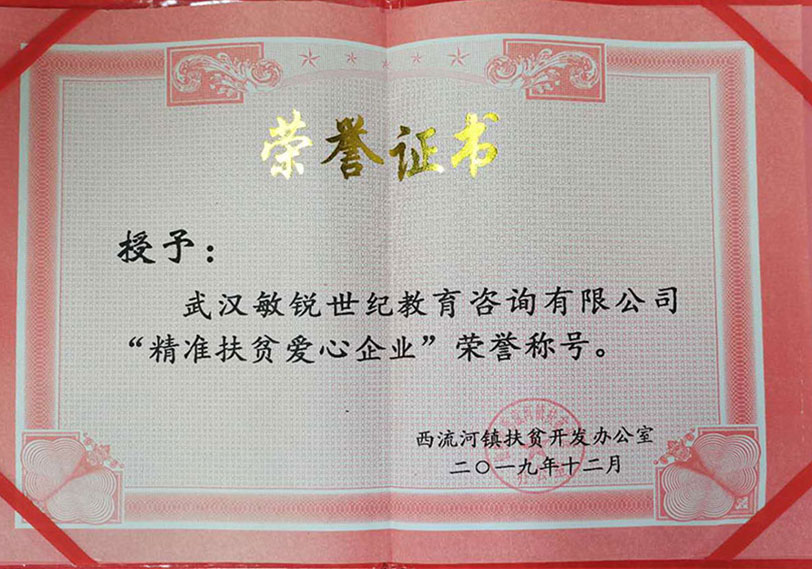 荣誉证书
授予：
武汉敏锐世纪教育咨询有限公司
“精准扶贫爱心企业”荣誉称号。
西流河镇扶贫开发办公室
二〇一九年十二月